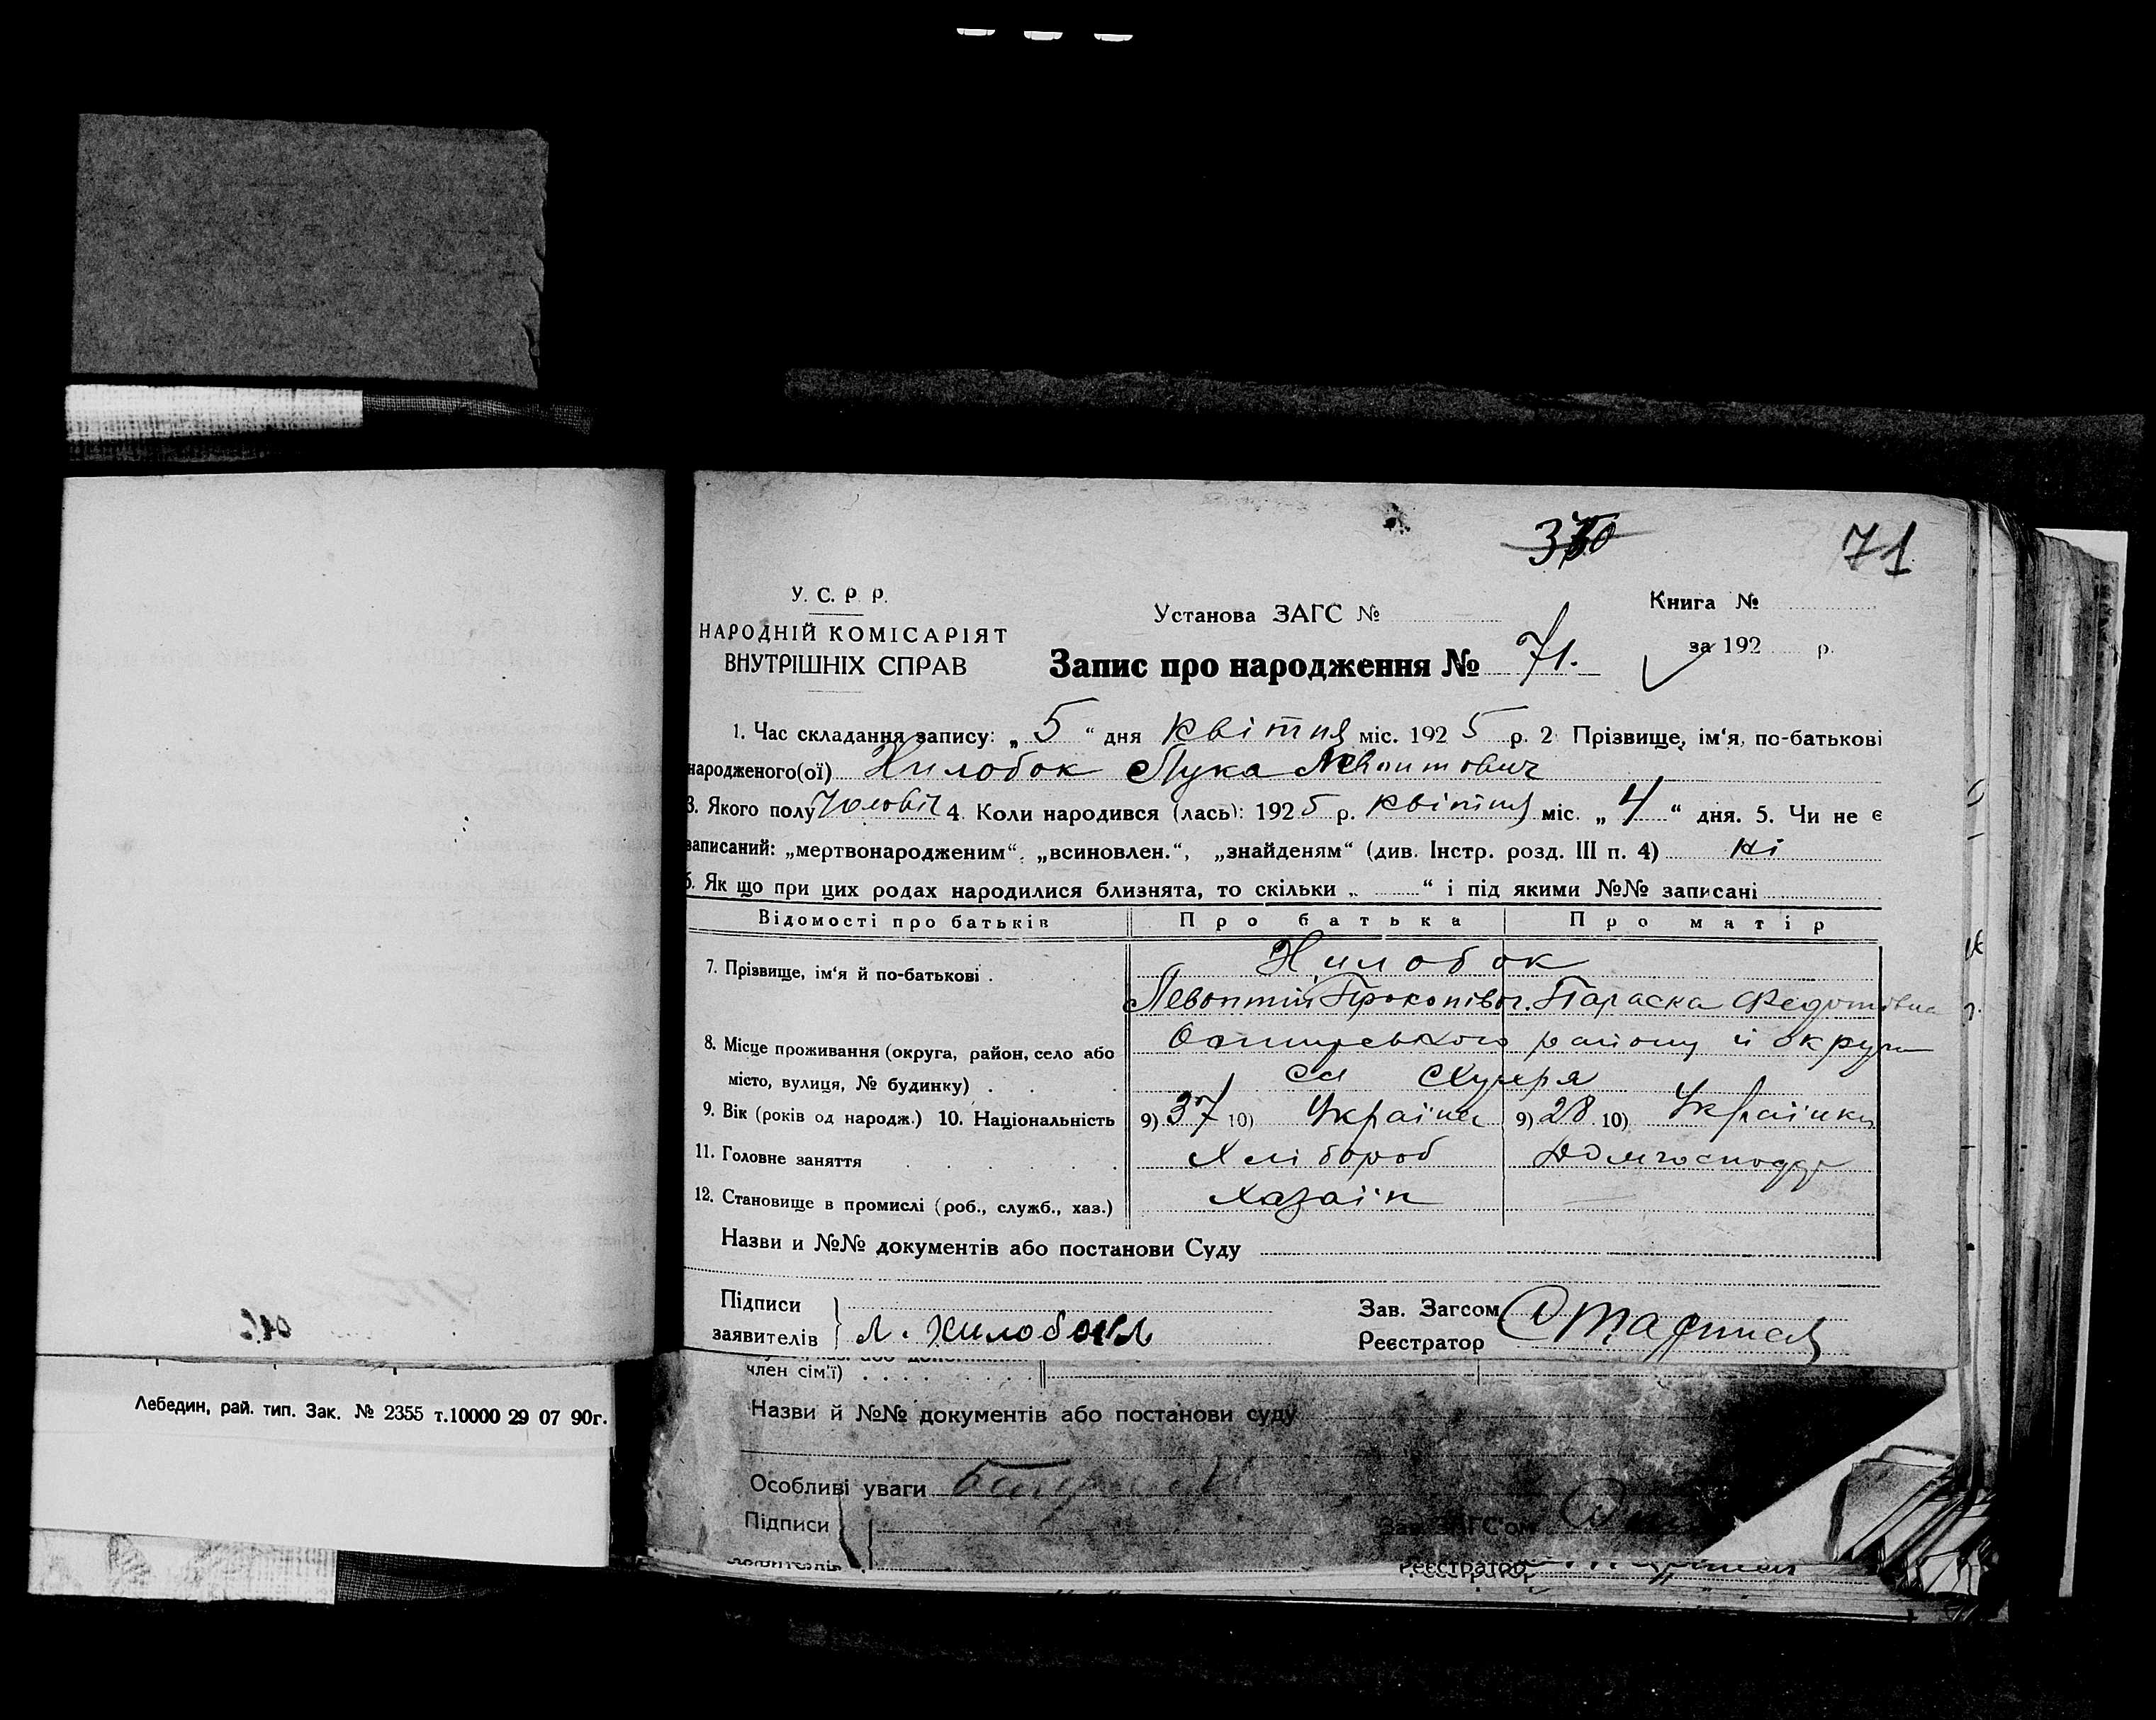 330
71
У. С. Р. Р.
НАРОДНІЙ КОМІСАРІЯТ
ВНУТРІШНІХ СПРАВ
Установа ЗАГС №
Книга №
за 192 р.
Запис про народження № 71.
1. Час складання запису: „ 5 “ дня квітня міс. 192 5 р. 2 Прізвище, ім‘я, по-батькові
народженого(ої) Хилобок Лука
3. Якого полу Чоловіч 4. Коли народився (лась): 192 5 р. квітня міс. „ 4 “ дня. 5. Чи не є
записаний: „мертвонародженим“, „всиновлен.“, „знайденям“ (див. Інстр. розд. III п. 4) ні
6. Як що при цих родах народилися близнята, то скільки „ “ і під якими №№ записані
Відомості про батьків Про батька Про матір
7. Прізвище, ім‘я й по-батькові . Хилобок
Левонтій Прокопівич. Параска Федотівна
8. Місце проживання (округа, район, село або Охтирського району й округи
місто, вулиця, № будинку) .
9. Вік (років од народж.) 10. Національність 9) 37 10) Україне 9) 28 10) Українка
11. Головне заняття Хлібороб
12. Становище в промислі (роб., служб., хаз.) Хазаїн —
Назви и №№ документів або постанови Суду
Підписи
заявителів Л. Хилобок
Зав. Загсом
Реєстратор
член сім'ї)
Назви й №№ документів або постанови суду
Особливі уваги
Підписи
Зав. ЗАГС'ом
Реєстратор
Лебедин, рай. тип. Зак. № 2355 т.10000 29 07 90г.